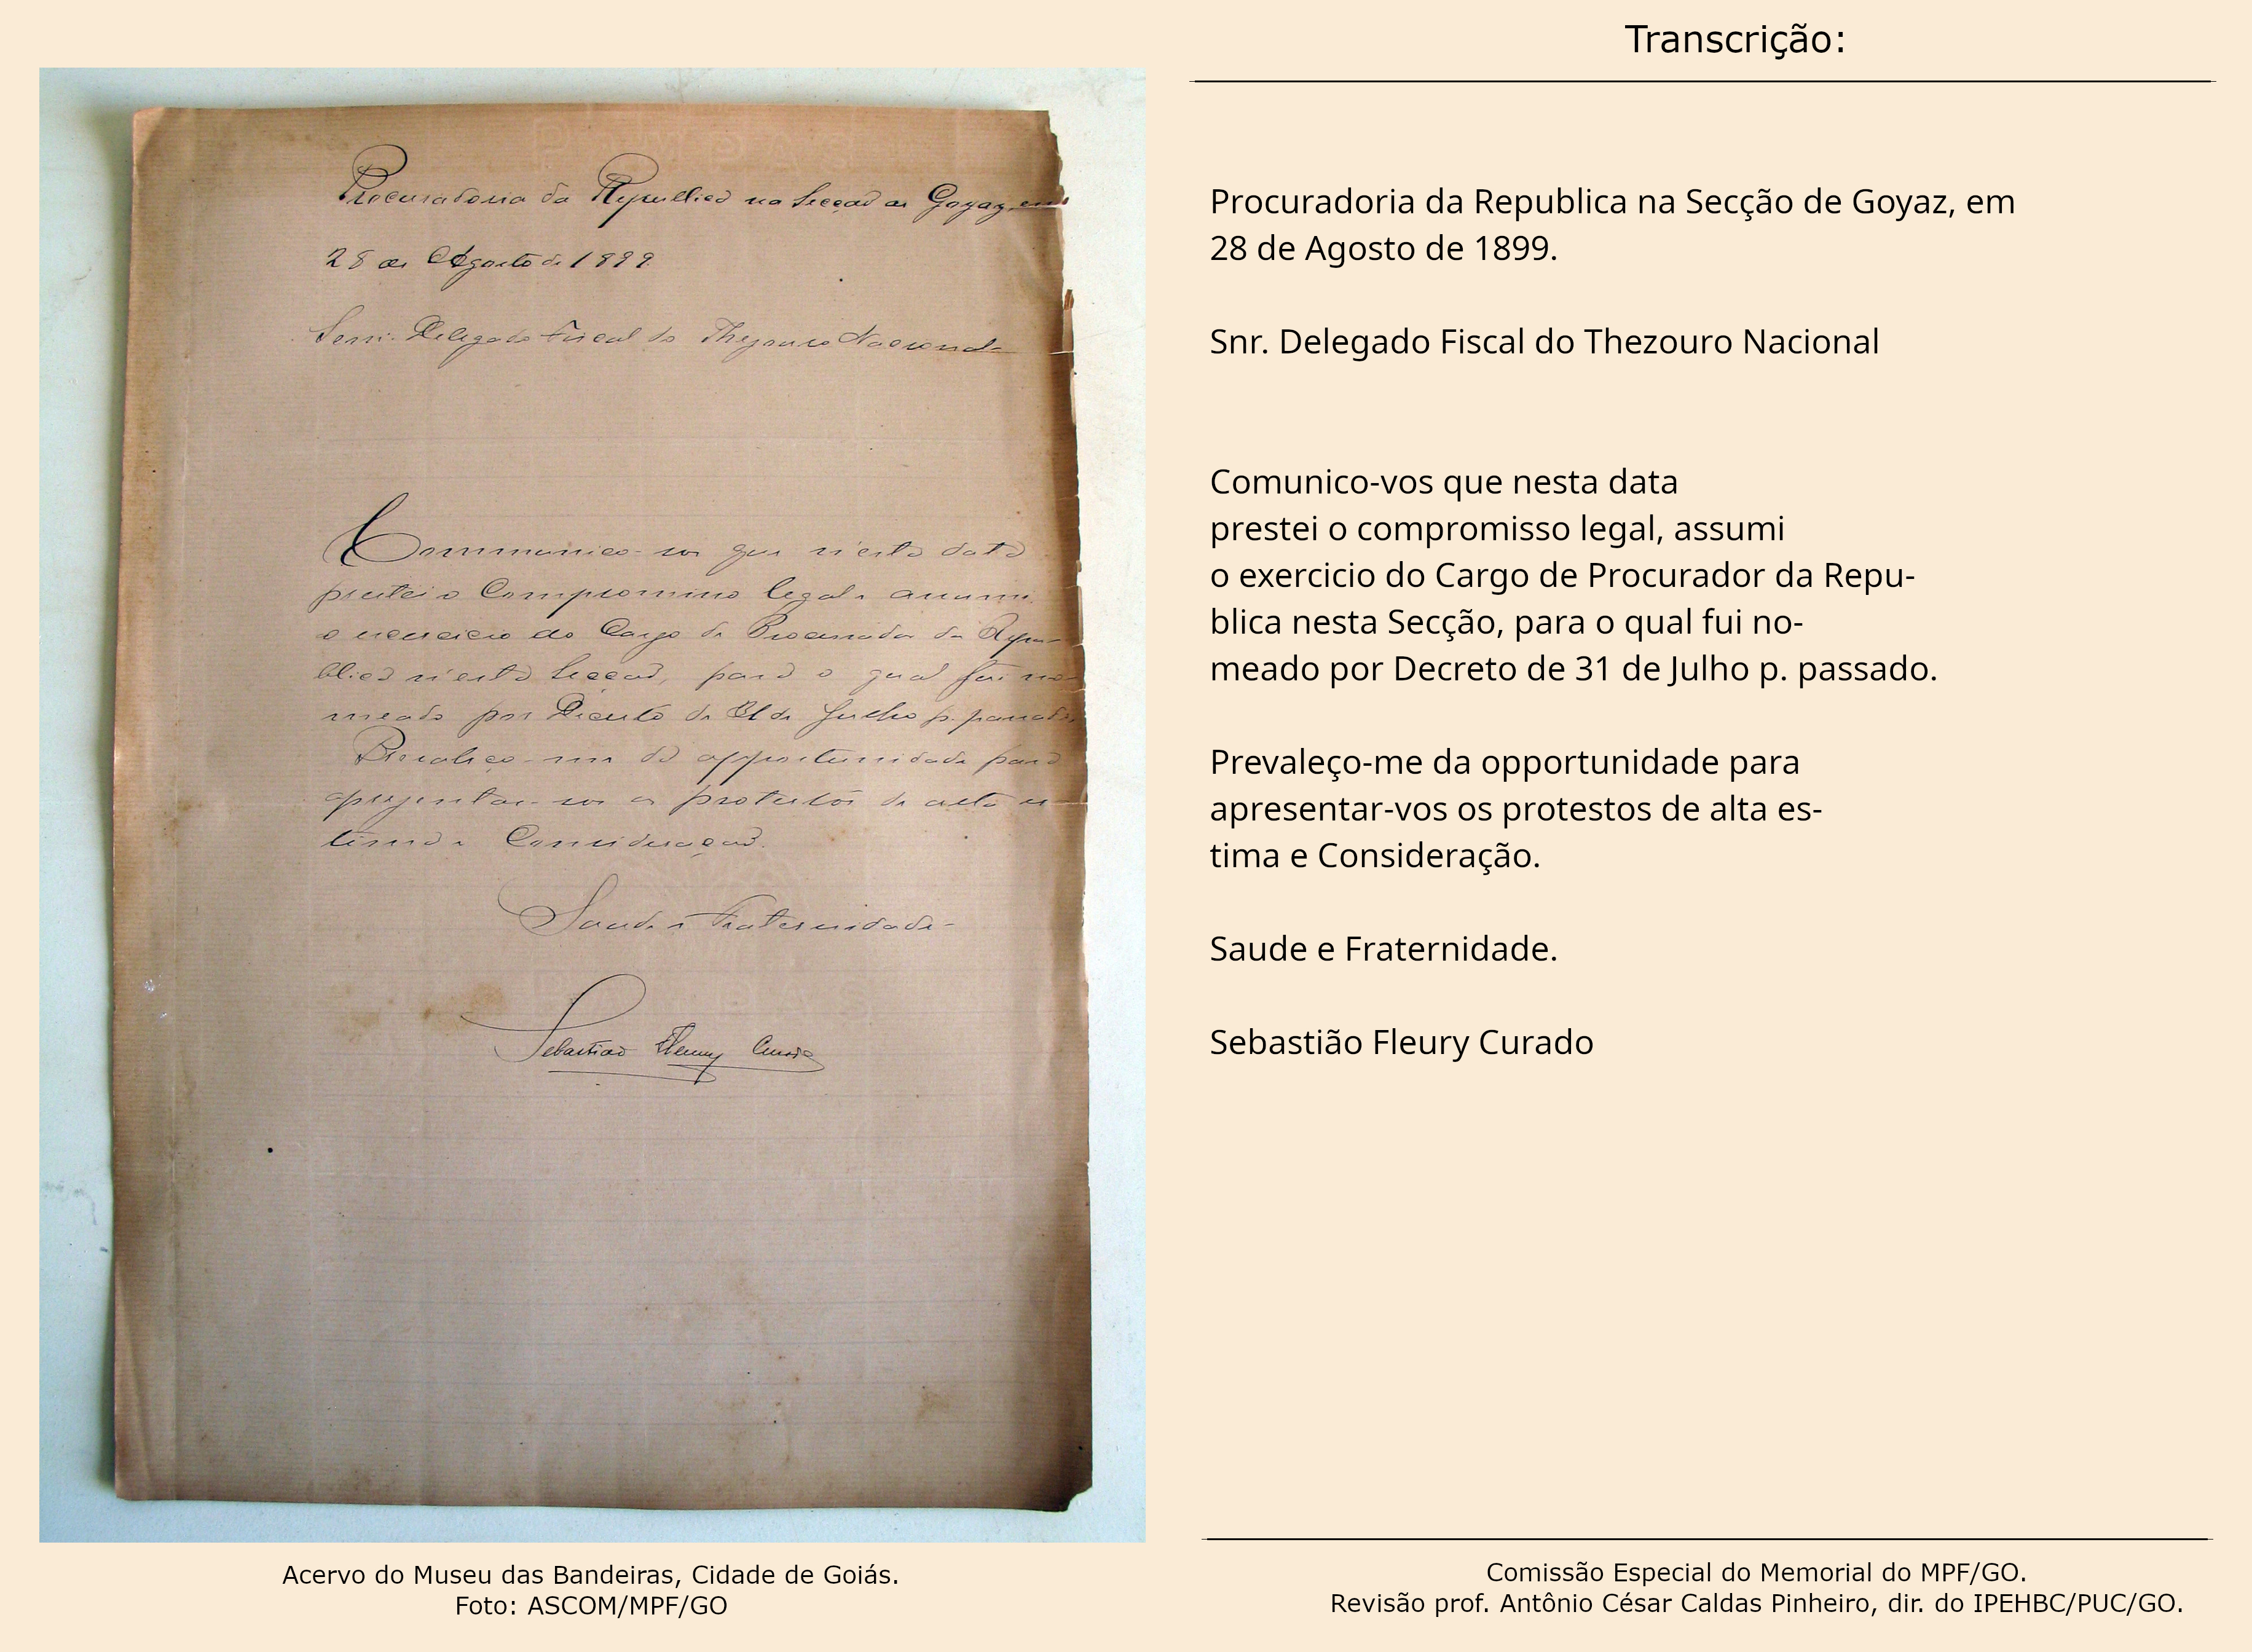 Procuradoria da Republica na Secção de Goyaz, em
28 de Agosto de 1899.
Senr. Delegado Fiscal do Thezouro Nacional
Communico-vos que n'esta data
prestei o Compromisso legal e assumi
o exercicio do Cargo de Procurador da Repu-
blica n'esta Secção, para o qual fui no-
meado por Decreto de 31 de Julho p. passado.
Prevaleço-me da opportunidade para
aprezentar-vos os protestos de alta es-
tima e Consideração.
Saude e Fraternidade
Sebastião Fleury Curado
Acervo do Museu das Bandeiras, Cidade de Goiás.
Foto: ASCOM/MPF/GO
Transcrição:
Procuradoria da Republica na Secção de Goyaz, em
28 de Agosto de 1899.
Snr. Delegado Fiscal do Thezouro Nacional
Comunico-vos que nesta data
prestei o compromisso legal, assumi
o exercicio do Cargo de Procurador da Repu-
blica nesta Secção, para o qual fui no-
meado por Decreto de 31 de Julho p. passado.
Prevaleço-me da opportunidade para
apresentar-vos os protestos de alta es-
tima e Consideração.
Saude e Fraternidade.
Sebastião Fleury Curado
Comissão Especial do Memorial do MPF/GO.
Revisão prof. Antônio César Caldas Pinheiro, dir. do IPEHBC/PUC/GO.